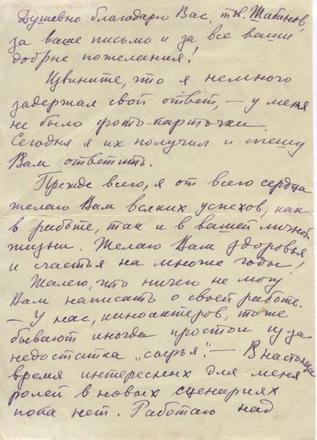 Душевно благодарю Вас, тов. Жабинов,
за ваше письмо и за все ваши
добрые пожелания!
Извините, что я немного
задержал свой ответ, – у меня
не было фото-карточки.
Сегодня я их получил и спешу
Вам ответить.
Прежде всего, я от всего сердца
желаю Вам всяких успехов, как
в работе, так и в вашей личной
жизни. Желаю Вам здоровья
и счастья на многие годы!
Жалею, что ничего не могу
Вам написать о своей работе.
– У нас, киноактеров, тоже
бывают иногда простои из за
недостатка „сырья“. – В настоящее
время интересных для меня
ролей в новых сценариях
пока нет. Работаю над